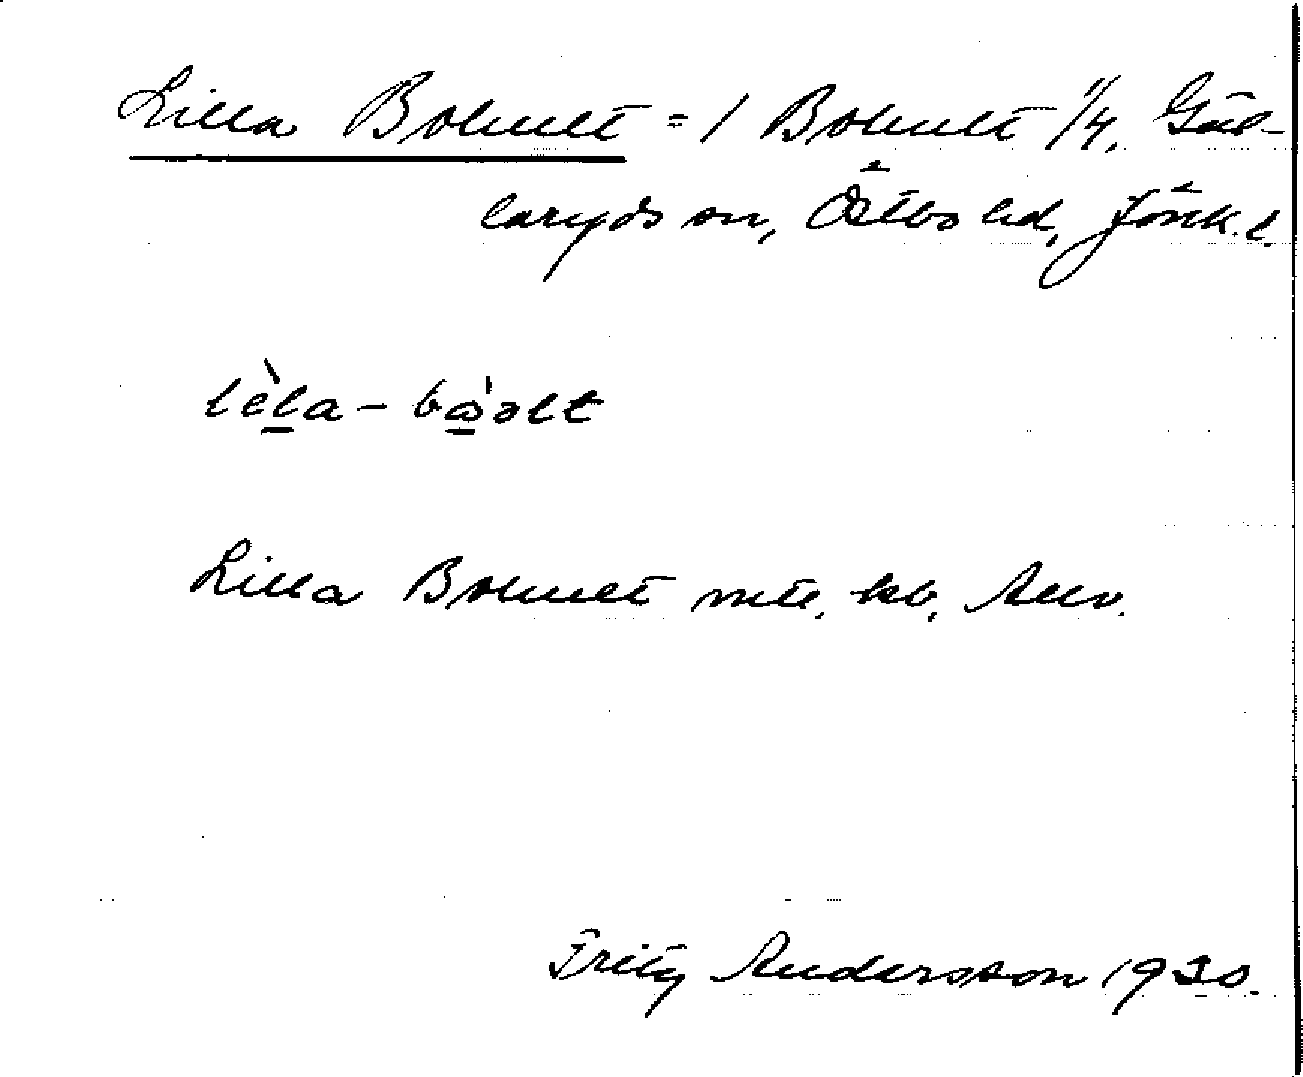 Lilla Bohult = / Bohult 1/4, Gäl-
laryds sn, Östbo hd, Jönk. l.
lèla - bòolt
Lilla Bohult mtl. kb, Allv.
Fritz Andersson 1930.